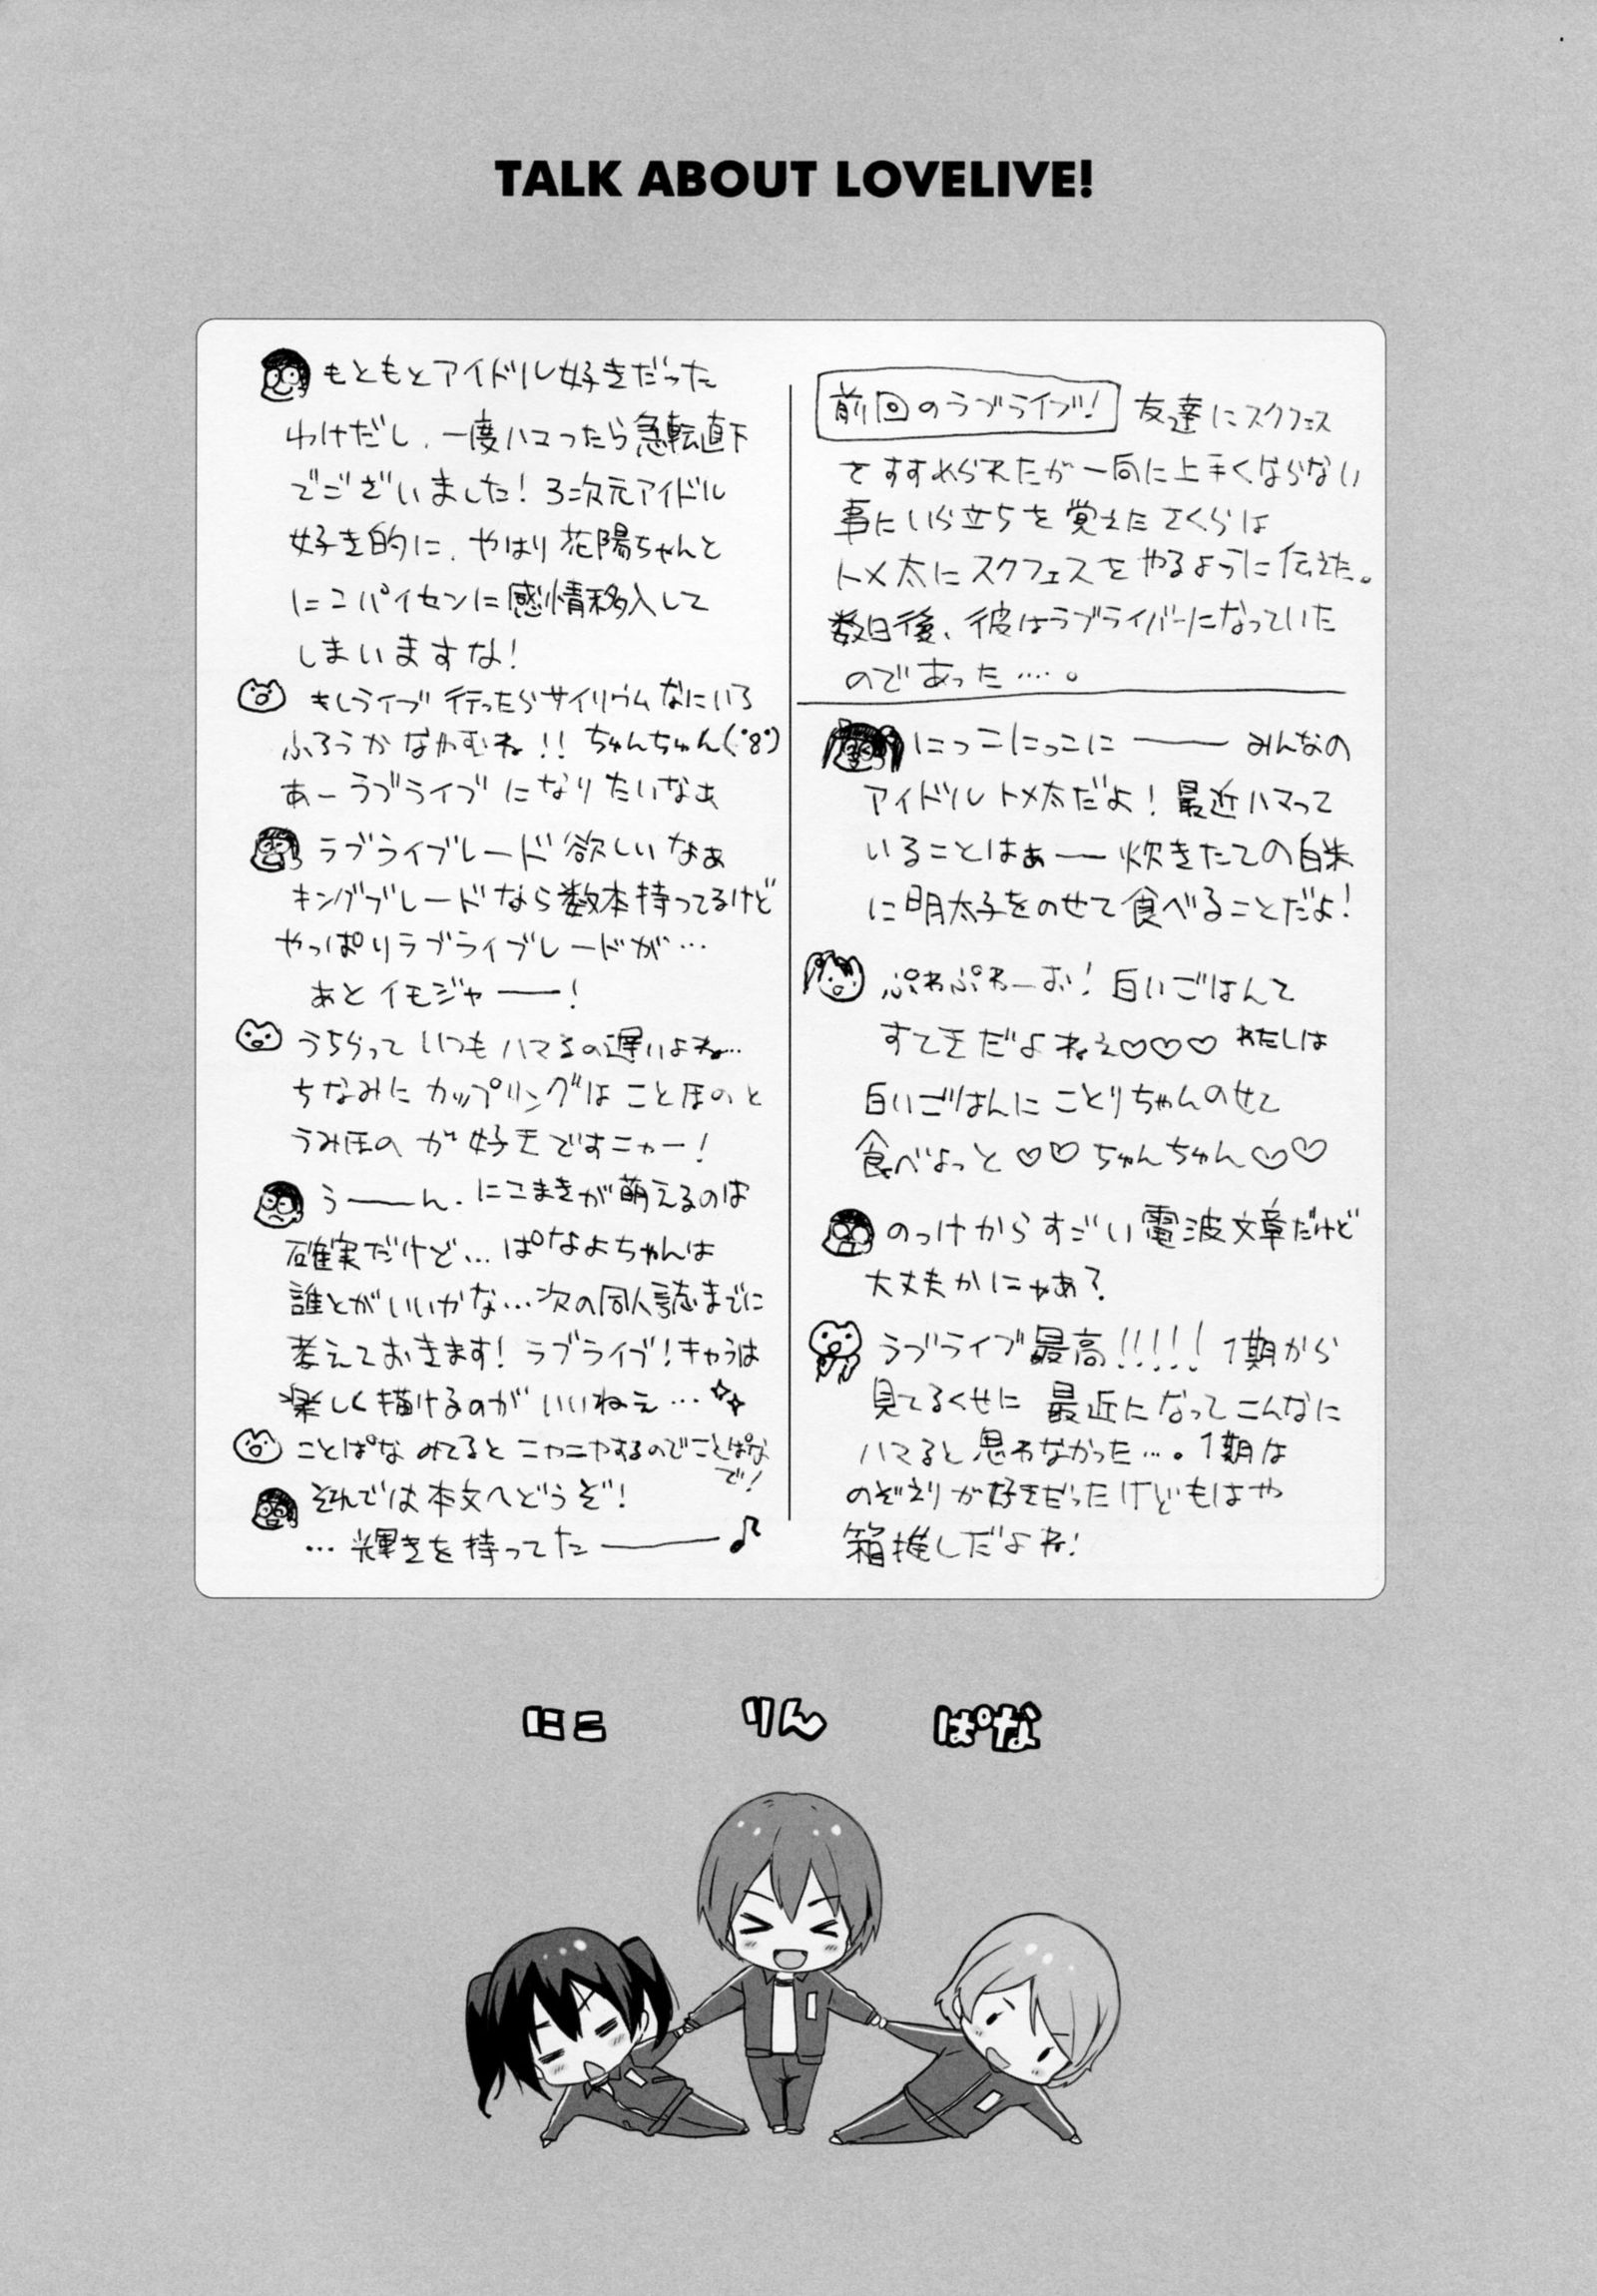 TALK ABOUT LOVELIVE!
前回のラブライブ! 友達にスクフェス
をすすめられたが一向に上手くならない
事にいら立ちを覚えたさくらは
トメ太にスクフェスをやるように伝えた。
数日後、彼はラブライバーになっていた
のであった….。
にっこにっこに―― みんなの
アイドルトメ太だよ!最近ハマって
いることはぁ―炊きたての白米
に明太子をのせて食べることだよ!
ぷわぷわーお!白いごはんて
すてきだよねぇ♡♡♡ わたしは
白いごはんにことりちゃんのせて
食べよっと♡♡ちゅんちゅん♡♡
のっけからすごい電波文章だけど
大丈夫かにゃあ?
ラブライブ最高!!!!! 1期から
見てるくせに 最近になってこんなに
ハマると思わなかった…。1期は
のぞえりが好きだったけどもはや
箱推しだよね!
もともとアイドル好きだった
わけだし、一度ハマったら急転直下
でございました!3次元アイドル
好き的に、やはり花陽ちゃんと
にこパイセンに感情移入して
しまいますな!
もしライブ行ったらサイリウムなにいろ
ふろうかなやむね!!ちゅんちゅん(・8・)
あーラブライブになりたいなぁ
ラブライブレード欲しいなぁ
キングブレードなら数本持ってるけど
やっぱりラブライブレードが…
あとイモジャ――!
うちらっていつもハマるの遅いよね…
ちなみにカップリングはことほのと
うみほのが好きですニャー!
う――ん、にこまきが萌えるのは
確実だけど…ぱなよちゃんは
誰とがいいかな…次の同人誌までに
考えておきます!ラブライブ!キャラは
楽しく描けるのがいいねぇ…
ことぱなみてるとニヤニヤするのでことぱな
で!
それでは本文へどうぞ!
…輝きを持ってた――♪
にこ りん ぱな